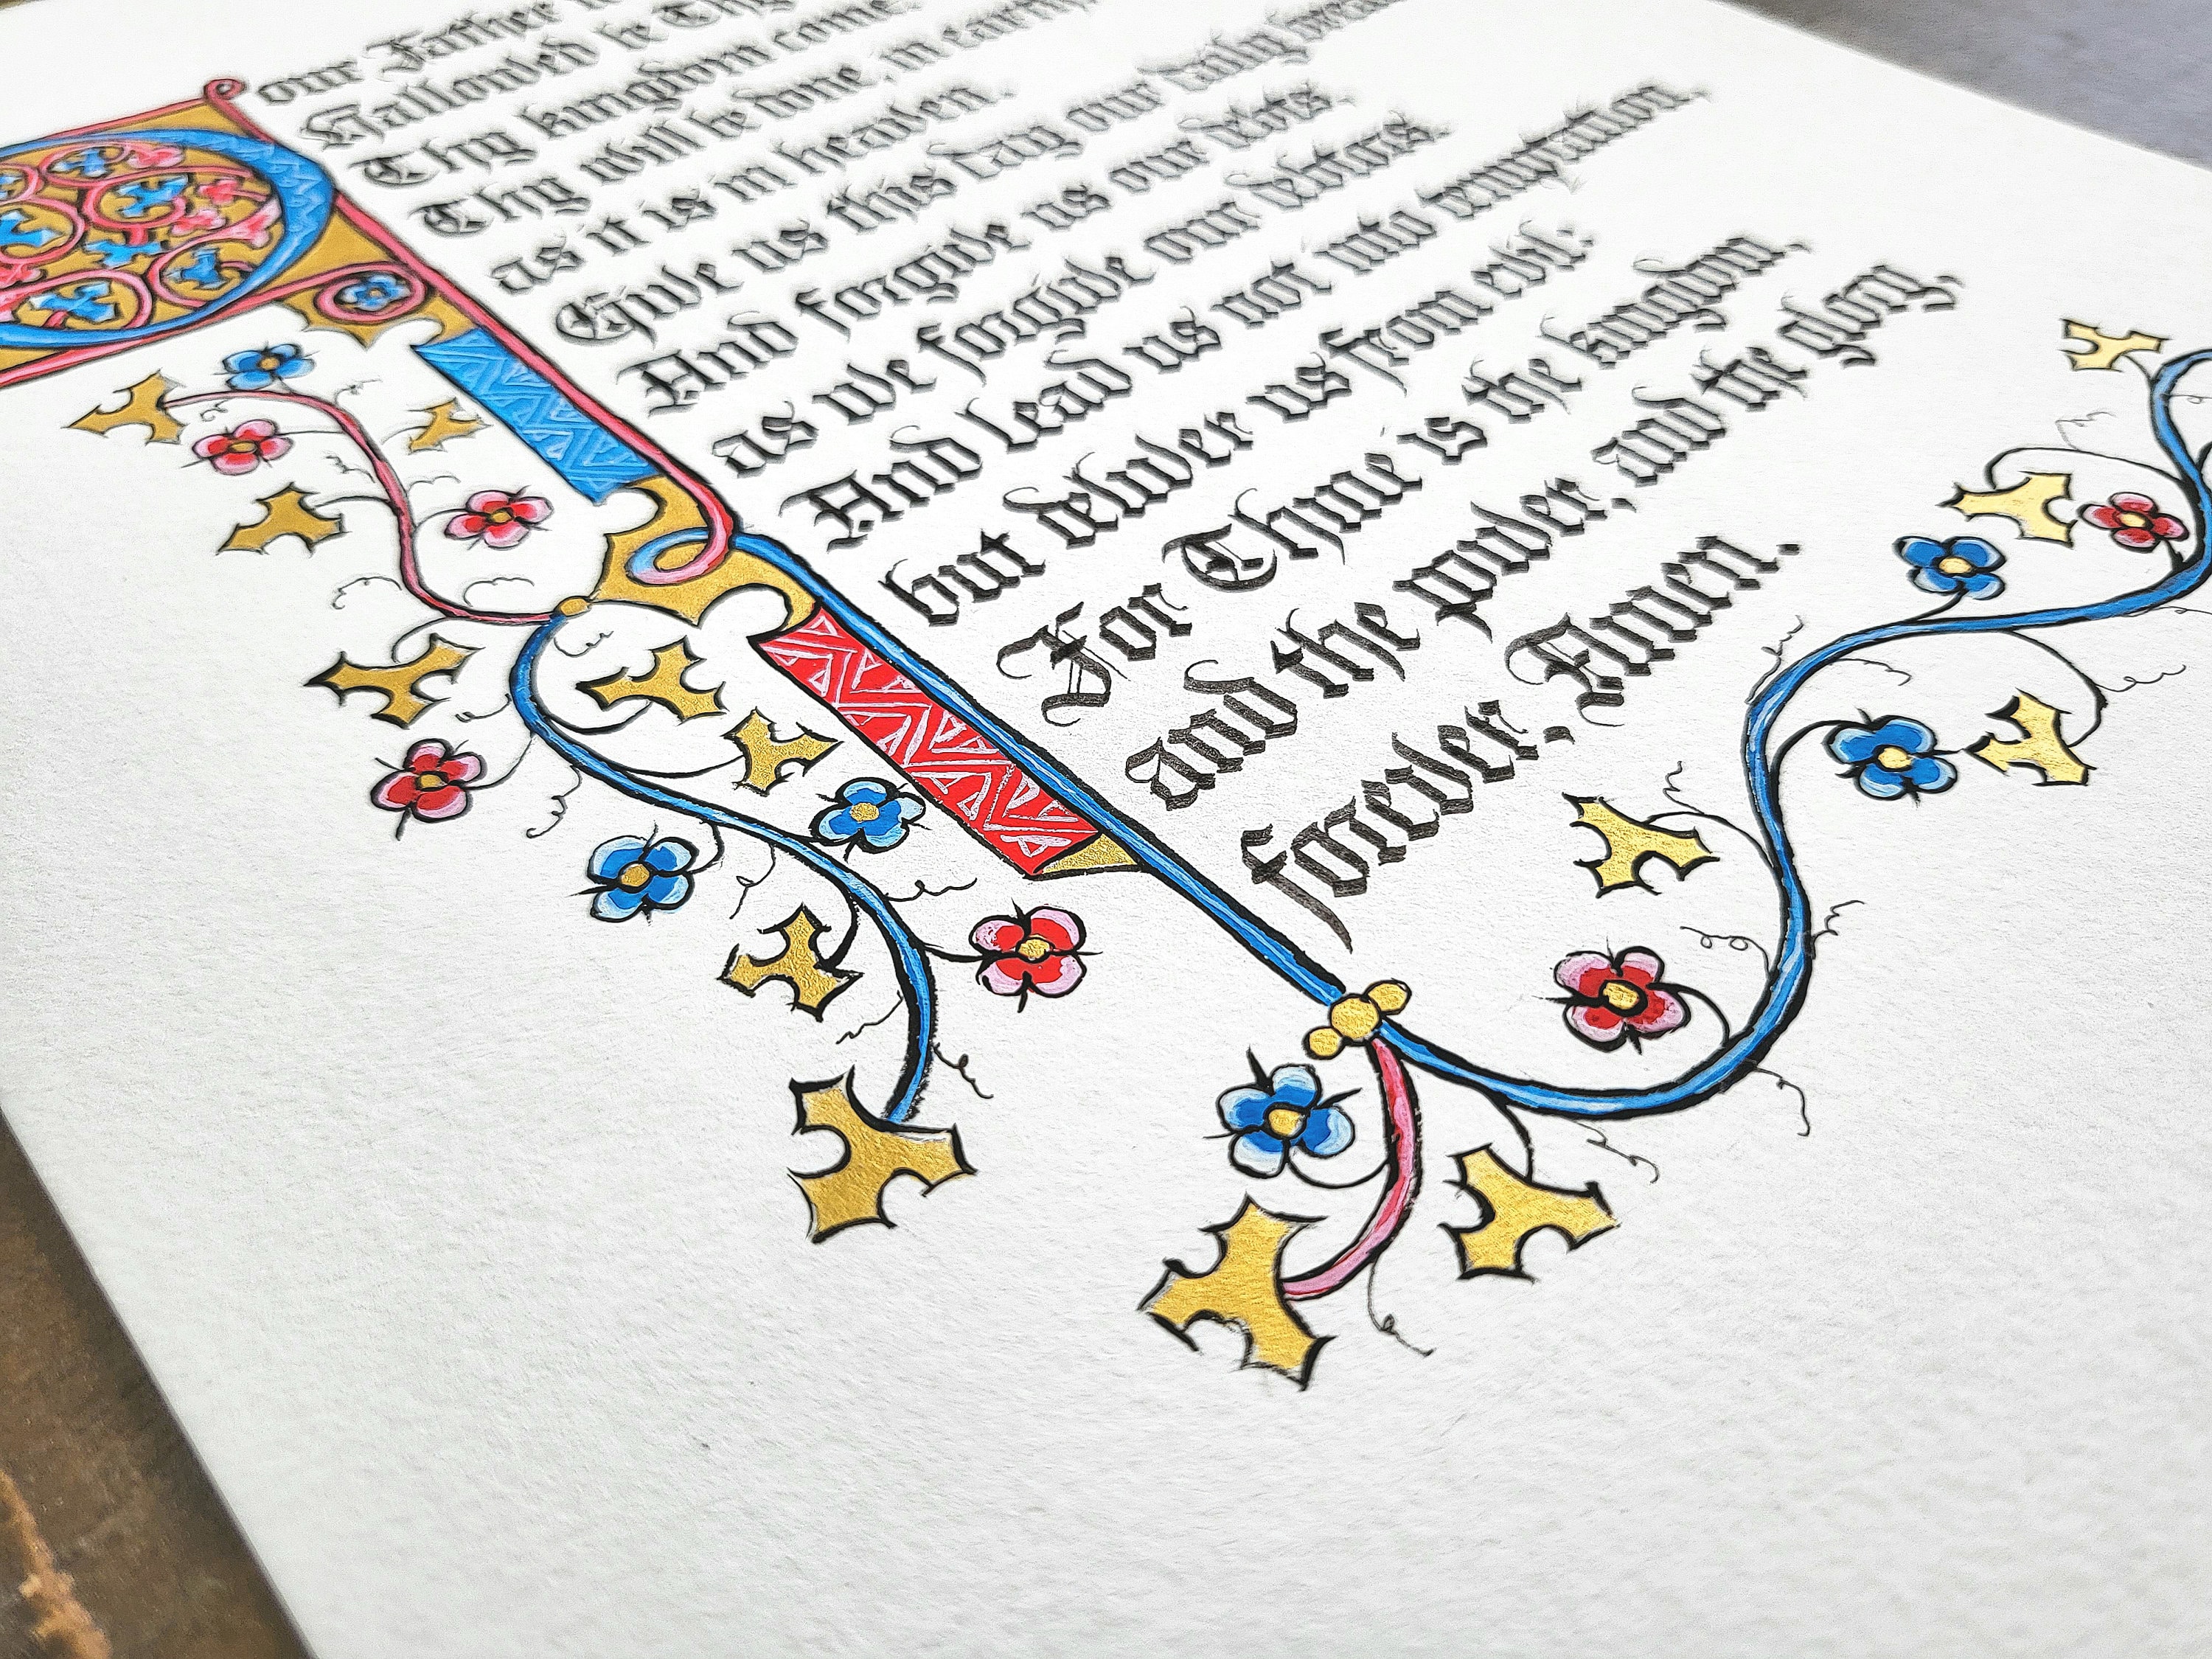 our Father
Hallowed be Thy
Thy kingdom come.
Thy will be done, in earth,
as it is in heaven.
Give us this day our daily bread
And forgive us our debts.
as we forgive our debtors.
And lead us not into temptation,
but deliver us from evil:
For Thine is the kingdom,
and the power, and the glory,
forever, Amen.